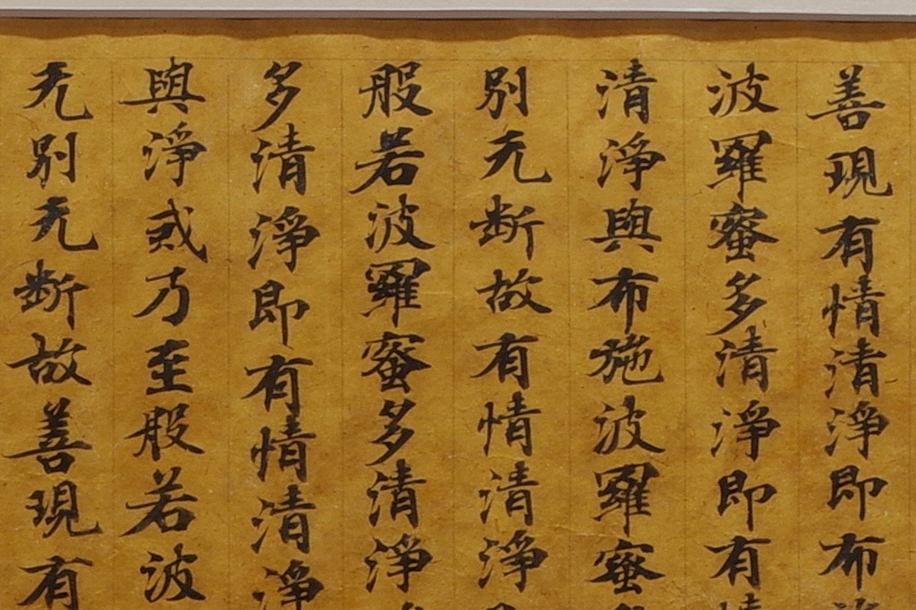 善現有情清淨即布
波羅蜜多清淨即有
清淨與布施波羅蜜
別无断故有情清淨
般若波羅蜜多清淨
多清淨即有情清淨
與淨或乃至般若波
无別无断故善現有